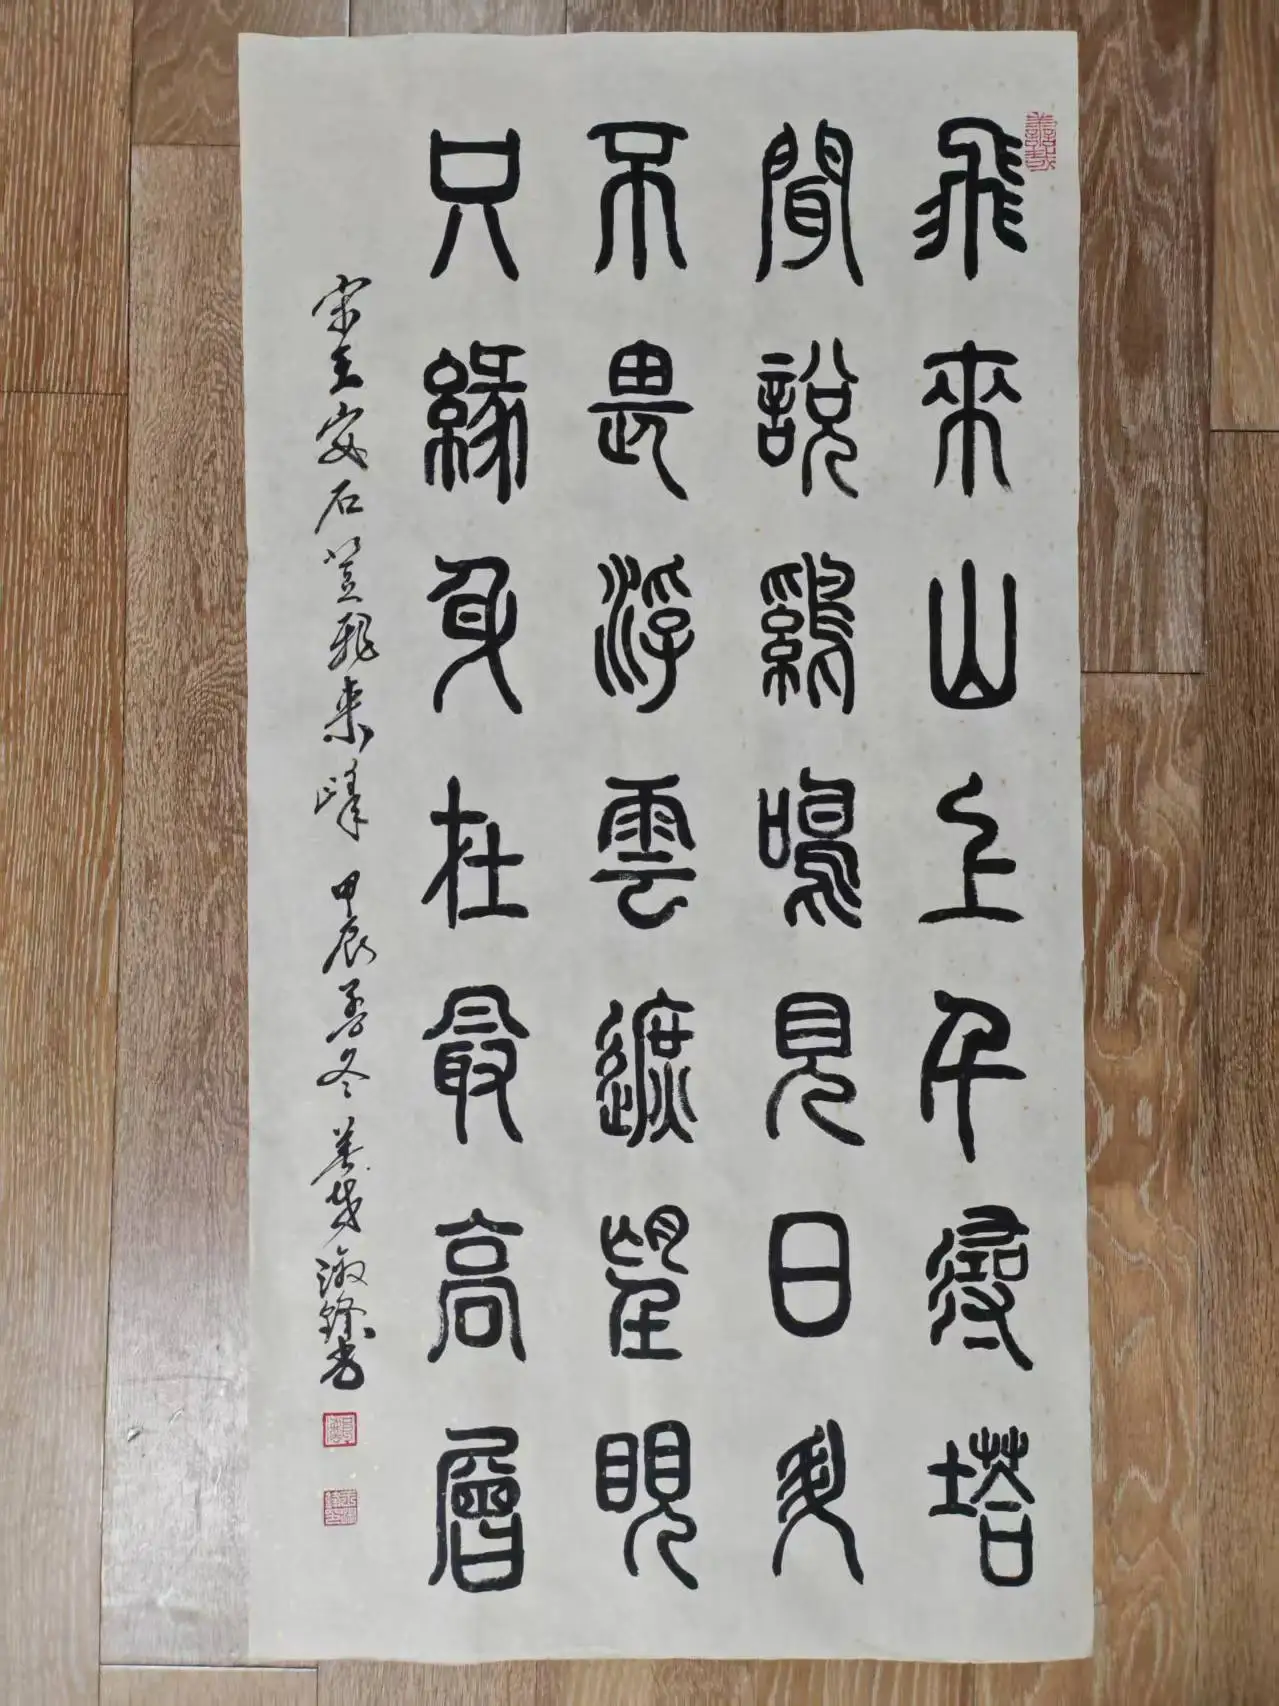 飛來山上千尋塔
聞說鷄鳴見日昇
不畏浮雲遮望眼
只緣身在最高層
宋王安石登飛來峰 甲辰孟冬 淑鋒書